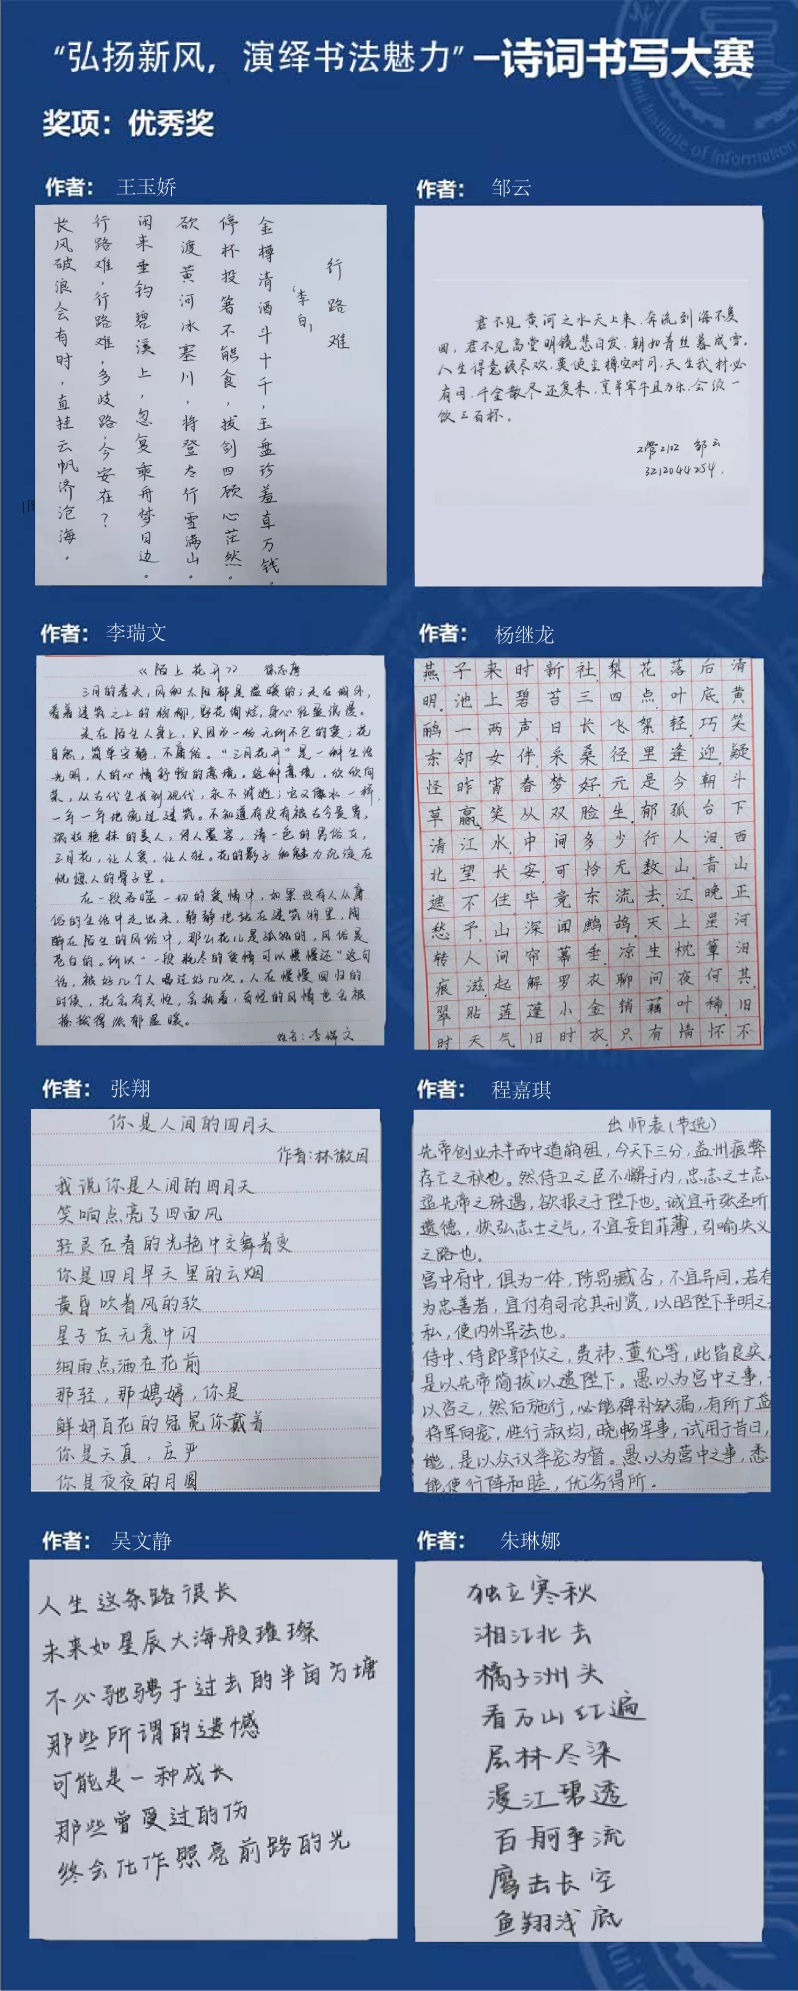 “弘扬新风，演绎书法魅力”–诗词书写大赛
奖项：优秀奖
作者： 王玉娇
行路难
「李白」
金樽清酒斗十千，玉盘珍羞直万钱。
停杯投箸不能食，拔剑四顾心茫然。
欲渡黄河冰塞川，将登太行雪满山。
闲来垂钓碧溪上，忽复乘舟梦日边。
行路难，行路难，多歧路，今安在？
长风破浪会有时，直挂云帆济沧海。
作者： 邹云
君不见黄河之水天上来.奔流到海不复
回，君不见高堂明镜悲白发.朝如青丝暮成雪.
人生得意须尽欢.莫使金樽空对月.天生我材必
有用.千金散尽还复来.烹羊宰牛且为乐.会须一
饮三百杯。
工管2102 邹云
3212044254.
作者： 李瑞文
《陌上花开》 徐志摩
三月的春天，风和太阳都是温暖的；走在郊外，
自然，简单安静，不庸俗。“三月花开”是一种生活
光明，人的心情舒畅的意境。这种意境，欣欣向
三月花，让人爱，让人狂。花的影子和魅力沉淀在
恍惚人的骨子里。
在一段吞噬一切的爱情中，如果没有人从庸
俗的生活中走出来，静静地站在建筑物里，陶
醉在陌生的风俗中，那么花儿是孤独的，风俗是
苍白的。所以“一段耽尽的爱情可以慢慢还”这句
话，被好几个人唱过好几次。人在慢慢回归的
时候，花会有灵性，会执着，奇怪的风情也会被
姓名：李瑞文
作者： 杨继龙
燕子来时新社.梨花落后清
明.池上碧苔三四点.叶底黄
鹂一两声.日长飞絮轻.巧笑
东邻女伴.采桑径里逢迎.疑
怪昨宵春梦好.元是今朝斗
草赢.笑从双脸生.郁孤台下
清江水.中间多少行人泪.西
北望长安.可怜无数山.青山
遮不住.毕竟东流去.江晚正
愁予.山深闻鹧鸪.天上星河
转.人间帘幕垂.凉生枕簟泪
痕滋.起解罗衣.聊问夜何其.
翠贴莲蓬小.金销藕叶稀.旧
时天气旧时衣.只有情怀不
作者： 张翔
你是人间的四月天
作者：林徽因
我说你是人间的四月天
笑响点亮了四面风
轻灵在春的光艳中交舞着变
你是四月早天里的云烟
黄昏吹着风的软
星子在无意中闪
细雨点洒在花前
那轻，那娉婷，你是
鲜妍百花的冠冕你戴着
你是天真，庄严
你是夜夜的月圆
作者： 程嘉琪
出师表(节选)
先帝创业未半而中道崩殂，今天下三分，益州疲弊
存亡之秋也。然侍卫之臣不懈于内，忠志之士忘
追先帝之殊遇，欲报之于陛下也。诚宜开张圣听
遗德，恢弘志士之气，不宜妄自菲薄，引喻失义
之路也。
宫中府中，俱为一体，陟罚臧否，不宜异同。若有
为忠善者，宜付有司论其刑赏，以昭陛下平明之
私，使内外异法也。
侍中、侍郎郭攸之，费祎、董允等，此皆良实，
是以先帝简拔以遗陛下。愚以为宫中之事，
以咨之，然后施行，必能裨补缺漏，有所广益
将军向宠，性行淑均，晓畅军事，试用于昔日，
能，是以众议举宠为督。愚以为营中之事，悉
能使行阵和睦，优劣得所。
作者： 吴文静
人生这条路很长
未来如星辰大海般璀璨
不必驰骋于过去的半亩方塘
那些所谓的遗憾
可能是一种成长
那些曾受过的伤
终会化作照亮前路的光
作者： 朱琳娜
独立寒秋
湘江北去
橘子洲头
看万山红遍
层林尽染
漫江碧透
百舸争流
鹰击长空
鱼翔浅底